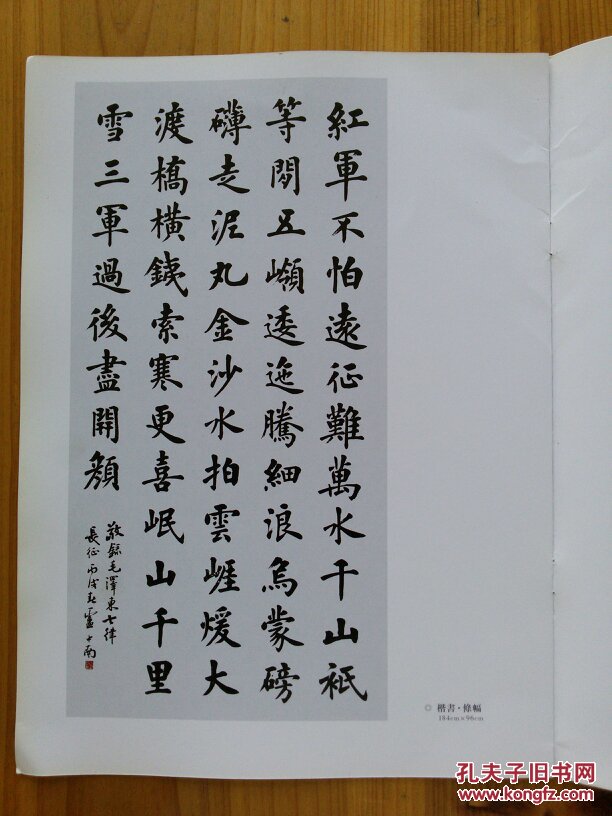 紅軍不怕遠征難萬水千山衹
等閒五嶺逶迤騰細浪烏蒙磅
礴走泥丸金沙水拍雲崕煖大
渡橋橫鐵索寒更喜岷山千里
雪三軍過後盡開顏
敬錄毛澤東七律
長征丙戌春盧中南
◎ 楷書·條幅
184cm×96cm
孔夫子旧书网
www.kongfz.com